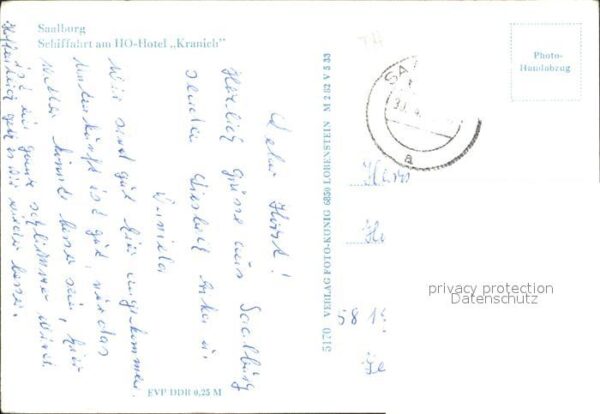 Saalburg
Schiffahrt am HO-Hotel „Kranich"
Photo-
Handabzug
Lieber Horst!
Herzlich Grüsse aus Saalburg
senden
Daniela
Wir sind gut hier angekommen.
Unterkunft ist gut, nur das
Wetter könnte besser sein, hier
ist ein ganz schlimmer Wind.
Hoffentlich geht es Dir wieder besser.
5170 VERLAG FOTO-KÖNIG 6850 LOBENSTEIN M 2 82 V 5 83
EVP DDR 0,25 M
SA
a
58
privacy protection
Datenschutz